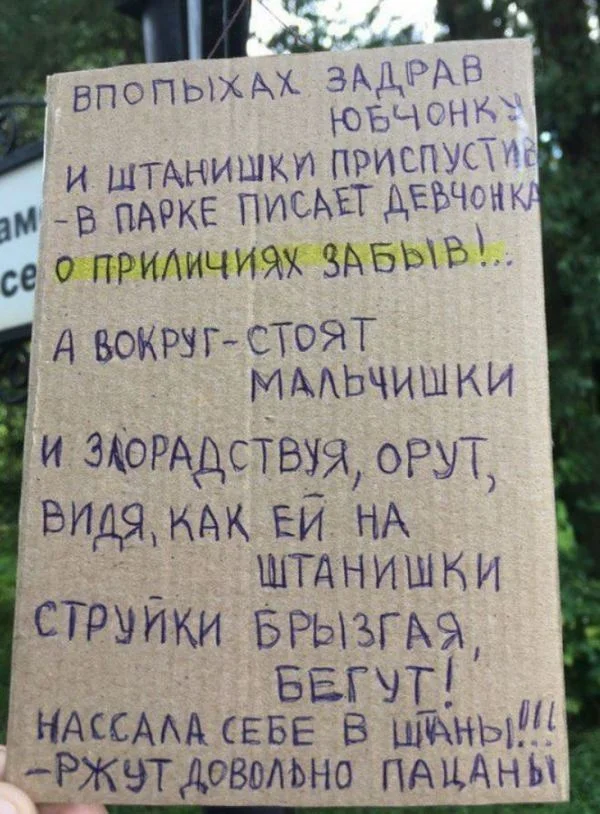 ВПОПЫХАХ ЗАДРАВ
ЮБЧОНКУ
И ШТАНИШКИ ПРИСПУСТИВ
-В ПАРКЕ ПИСАЕТ ДЕВЧОНКА
О ПРИЛИЧИЯХ ЗАБЫВ!..
А ВОКРУГ-СТОЯТ
МАЛЬЧИШКИ
И ЗЛОРАДСТВУЯ, ОРУТ,
ВИДЯ, КАК ЕЙ НА
ШТАНИШКИ
СТРУЙКИ БРЫЗГАЯ,
БЕГУТ!
НАССАЛА СЕБЕ В ШТАНЫ!!!
-РЖУТ ДОВОЛЬНО ПАЦАНЫ